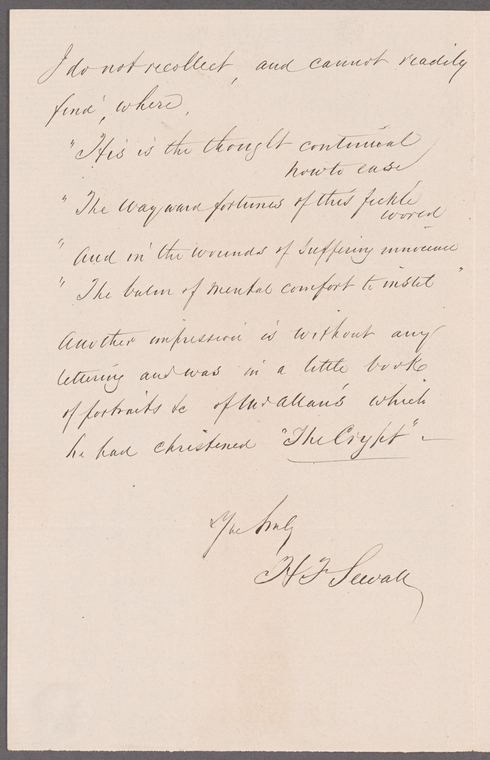 I do not recollect, and cannot readily
find, where,
"His is the thought continual
how to ease
"The wayward fortunes of this fickle
world
"And in the wounds of suffering innocence
"The balm of mental comfort to instil"
Another impression is without any
lettering and was in a little book
of portraits &c of Mr Allan's which
he had christened "The Crypt" –
Yrs truly
H F Sewall